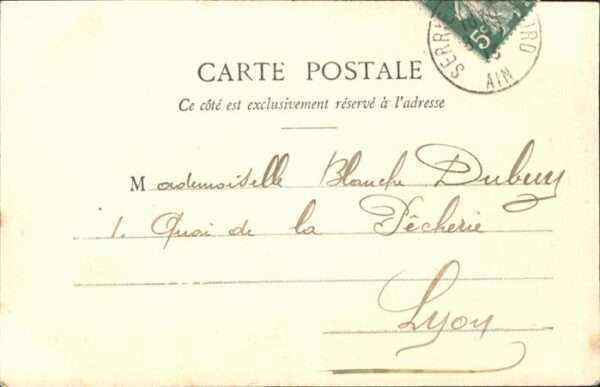 5c
SERR
ORD
AIN
CARTE POSTALE
Ce côté est exclusivement réservé à l'adresse
Mademoiselle Blanche Dubuy
1. Quai de la Pêcherie
Lyon